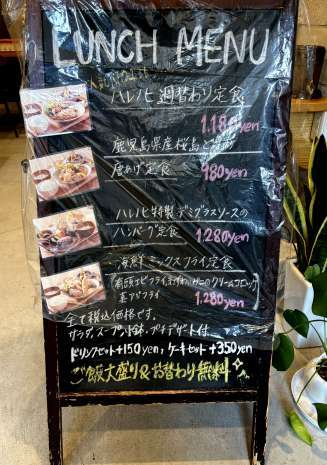 LUNCH MENU
ハレノヒ 週替わり定食
1,180yen
鹿児島県産桜島どり
唐あげ定食 980yen
ハレノヒ特製デミグラスソースの
ハンバーグ定食 1,280yen
海鮮ミックスフライ定食
(有頭エビフライ クリームコロッケ
アジフライ 1,280yen
全て税込価格です。
サラダ、スープ、小鉢、プチデザート付
ドリンクセット+150yen, ケーキセット+350yen
ご飯大盛り&お替わり無料